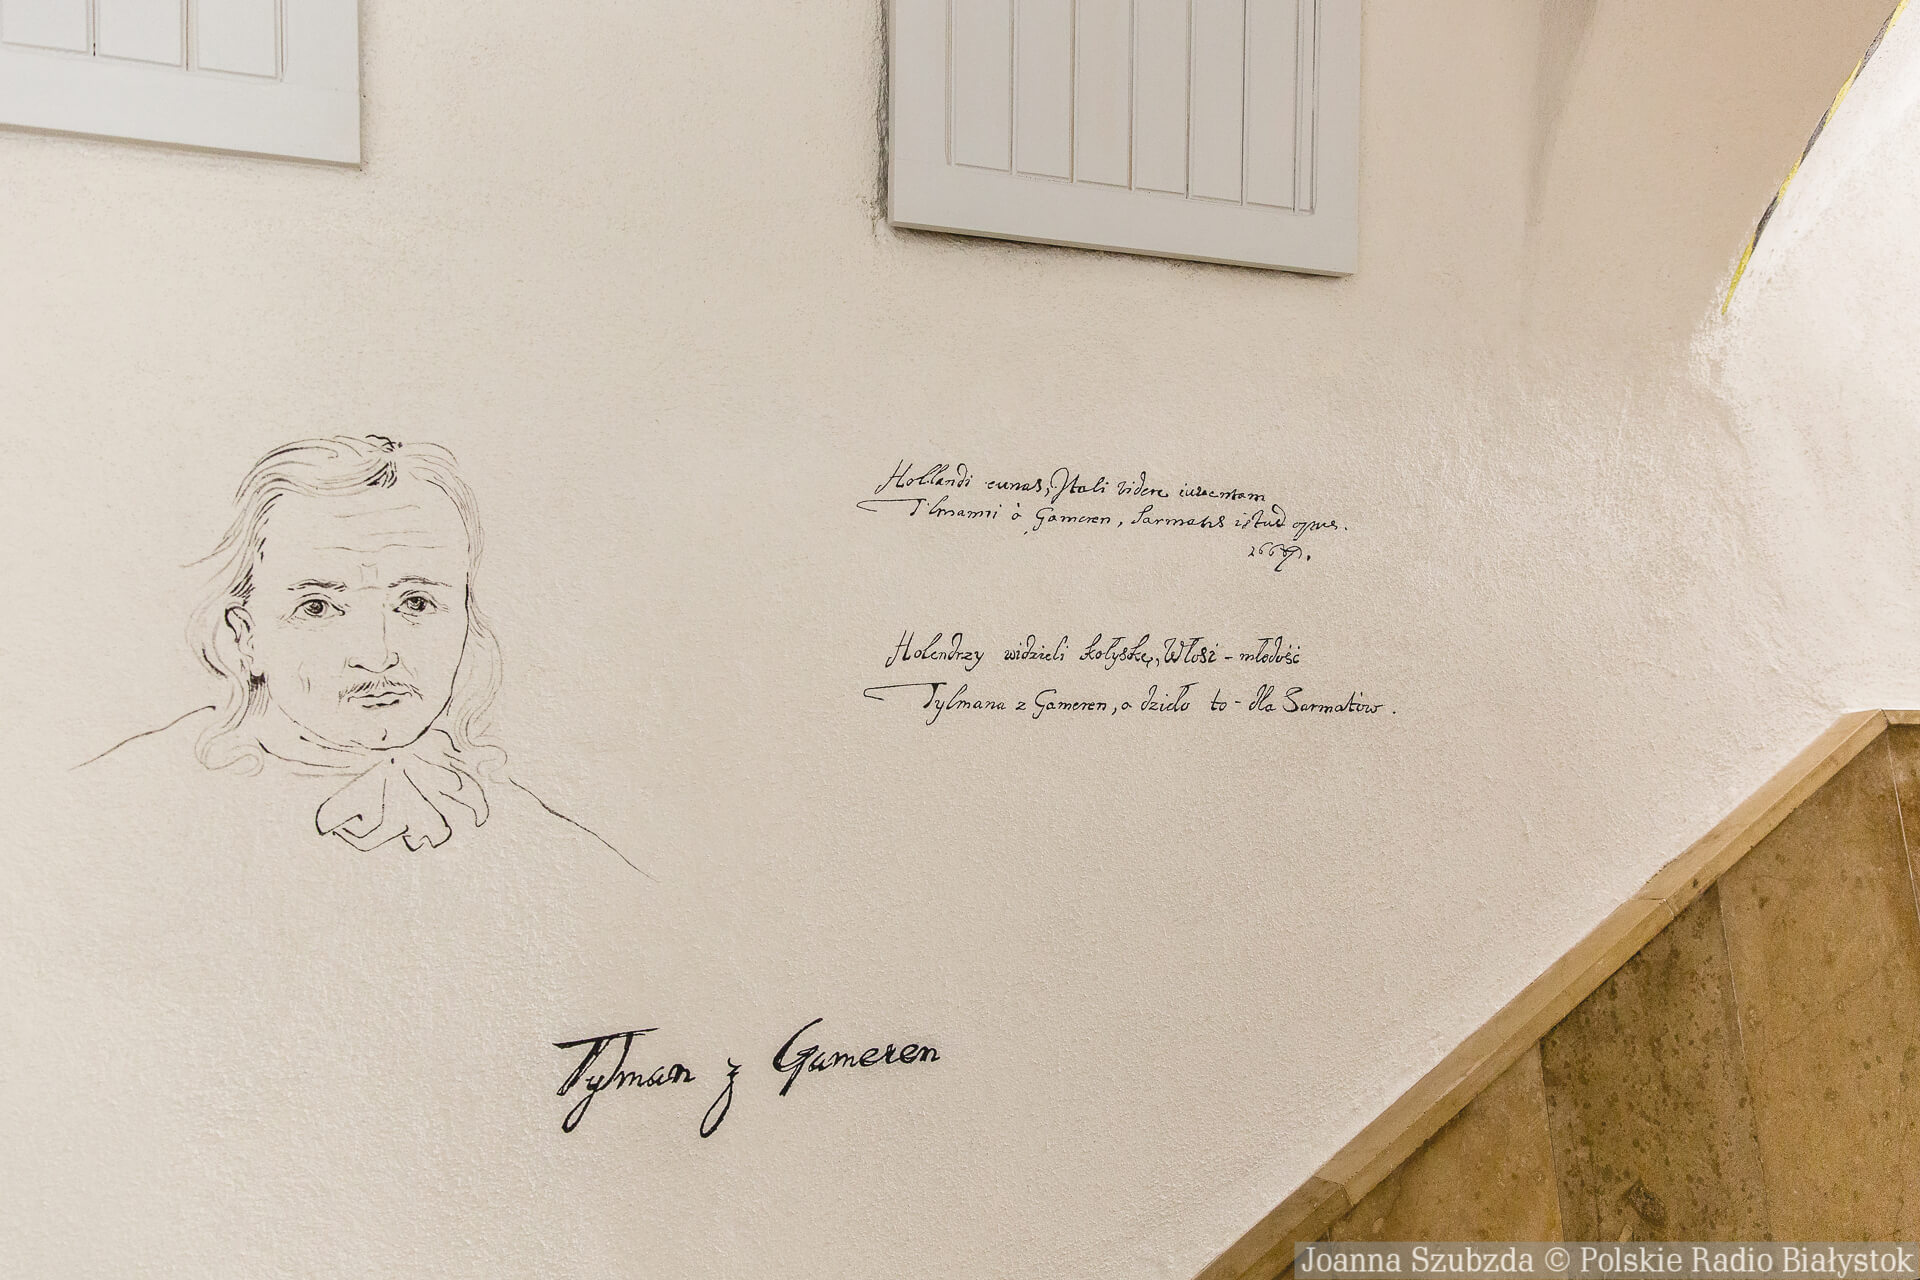 Hollandi cunas, Itali videre iuventam
Tilmanni à Gameren, Sarmatis istud opus.
Holendrzy widzieli kołyskę, Włosi - młodość
Tylmana z Gameren, a dzieło to - dla Sarmatów.
Tylman z Gameren
Joanna Szubzda © Polskie Radio Białystok